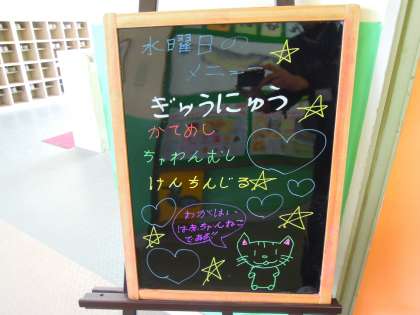 水曜日の
メニュー
ぎゅうにゅう
かてめし
ちゃわんむし
けんちんじる
わがはい
はきゅちゃんねこ
である